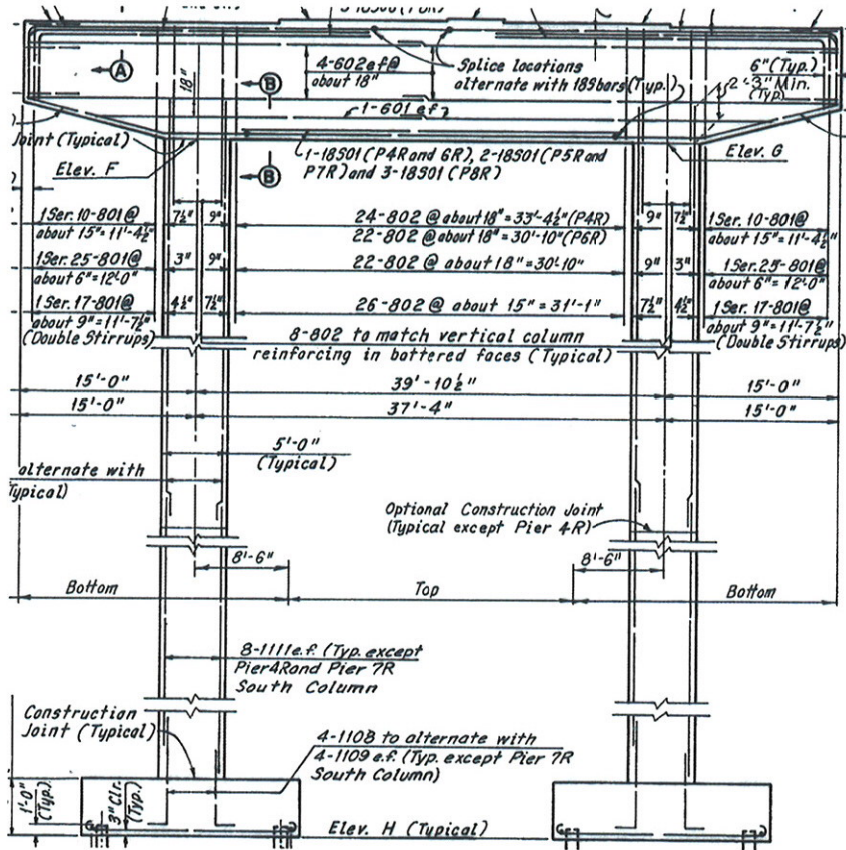 4-602 ef@
about 18"
Splice locations
alternate with 18Sbars (Typ.)
6" (Typ.)
2'-3" Min.
(Typ.)
A
B
18"
1-601 ef
Joint (Typical)
Elev. F
B
1-18S01 (P4R and 6R), 2-18S01 (P5R and
P7R) and 3-18S01 (P8R)
Elev. G
1 Ser. 10-801@
about 15" = 11'-4½"
7½"
9"
24-802 @ about 18" = 33'-4½" (P4R)
22-802 @ about 18" = 30'-10" (P6R)
9"
7½"
1 Ser. 10-801@
about 15" = 11'-4½"
1 Ser. 25-801@
about 6" = 12'-0"
3"
9"
22-802 @ about 18" = 30'-10"
9"
3"
1 Ser. 25-801@
about 6" = 12'-0"
1 Ser. 17-801@
about 9" = 11'-7½"
(Double Stirrups)
4½"
7½"
26-802 @ about 15" = 31'-1"
7½"
4½"
1 Ser. 17-801@
about 9" = 11'-7½"
(Double Stirrups)
8-802 to match vertical column
reinforcing in battered faces (Typical)
15'-0"
39'-10½"
15'-0"
15'-0"
37'-4"
15'-0"
5'-0"
(Typical)
alternate with
Typical)
Optional Construction Joint
(Typical except Pier 4R)
8'-6"
8'-6"
Bottom
Top
Bottom
8-1111 e.f. (Typ. except
Pier 4R and Pier 7R
South Column
Construction
Joint (Typical)
4-1108 to alternate with
4-1109 e.f. (Typ. except Pier 7R
South Column)
1'-0"
(Typ.)
3" Clr.
(Typ.)
Elev. H (Typical)